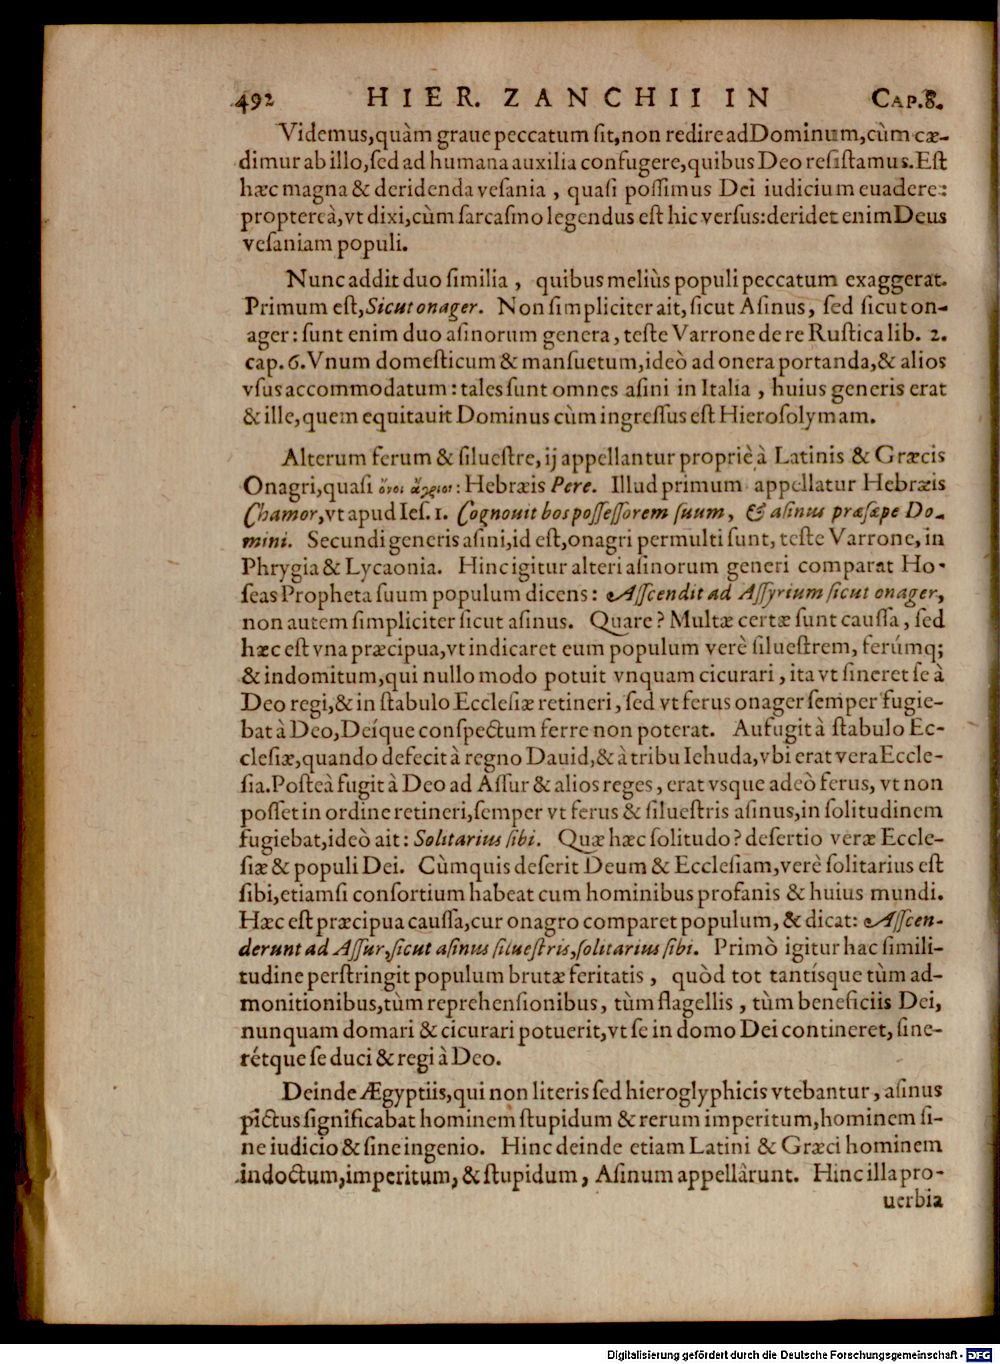 492 HIER. ZANCHII IN CAP.8.
Videmus,quàm graue peccatum ſit,non redire ad Dominum,cùm cæ-
dimur ab illo,ſed ad humana auxilia confugere,quibus Deo reſiſtamus.Eſt
hæc magna & deridenda veſania , quaſi poſſimus Dei iudicium euadere:
proptereà,vt dixi,cùm ſarcaſmo legendus eſt hic verſus:deridet enim Deus
veſaniam populi.
Nunc addit duo ſimilia , quibus meliùs populi peccatum exaggerat.
Primum eſt,Sicut onager. Non ſimpliciter ait, ſicut Aſinus, ſed ſicut on-
ager: ſunt enim duo aſinorum genera, teſte Varrone de re Ruſtica lib. 2.
cap. 6. Vnum domeſticum & manſuetum,ideò ad onera portanda,& alios
vſus accommodatum: tales ſunt omnes aſini in Italia , huius generis erat
& ille,quem equitauit Dominus cùm ingreſſus eſt Hieroſolymam.
Alterum ferum & ſilueſtre, ij appellantur propriè à Latinis & Græcis
Onagri,quaſi ὄνοι ἄγριοι: Hebræis Pere. Illud primum appellatur Hebræis
Chamor,vt apud Ieſ. 1. Cognouit bos poſſeſſorem ſuum, & aſinus præſæpe Do-
mini. Secundi generis aſini,id eſt,onagri permulti ſunt, teſte Varrone, in
Phrygia & Lycaonia. Hinc igitur alteri aſinorum generi comparat Ho-
ſeas Propheta ſuum populum dicens: Aſſcendit ad Aſſyrium ſicut onager,
non autem ſimpliciter ſicut aſinus. Quare? Multæ certæ ſunt cauſſa, ſed
hæc eſt vna præcipua,vt indicaret eum populum verè ſilueſtrem, ferúmq;
& indomitum,qui nullo modo potuit vnquam cicurari, ita vt ſineret ſe à
Deo regi,& in ſtabulo Eccleſiæ retineri, ſed vt ferus onager ſemper fugie-
bat à Deo,Deíque conſpectum ferre non poterat. Aufugit à ſtabulo Ec-
cleſiæ,quando defecit à regno Dauid,& à tribu Iehuda,vbi erat vera Eccle-
ſia.Poſteà fugit à Deo ad Aſſur & alios reges, erat vsque adeò ferus, vt non
poſſet in ordine retineri,ſemper vt ferus & ſilueſtris aſinus,in ſolitudinem
fugiebat,ideò ait: Solitarius ſibi. Quæ hæc ſolitudo? deſertio veræ Eccle-
ſiæ & populi Dei. Cùm quis deſerit Deum & Eccleſiam,verè ſolitarius eſt
ſibi,etiamſi conſortium habeat cum hominibus profanis & huius mundi.
Hæc eſt præcipua cauſſa,cur onagro comparet populum, & dicat: Aſſcen-
derunt ad Aſſur,ſicut aſinus ſilueſtris,ſolitarius ſibi. Primò igitur hac ſimili-
tudine perſtringit populum brutæ feritatis , quòd tot tantísque tùm ad-
monitionibus,tùm reprehenſionibus, tùm flagellis , tùm beneficiis Dei,
nunquam domari & cicurari potuerit,vt ſe in domo Dei contineret, ſine-
rétque ſe duci & regi à Deo.
Deinde Ægyptiis,qui non literis ſed hieroglyphicis vtebantur, aſinus
pictus ſignificabat hominem ſtupidum & rerum imperitum,hominem ſi-
ne iudicio & ſine ingenio. Hinc deinde etiam Latini & Græci hominem
indoctum,imperitum, & ſtupidum, Aſinum appellârunt. Hinc illa pro-
uerbia
Digitalisierung gefördert durch die Deutsche Forschungsgemeinschaft - DFG